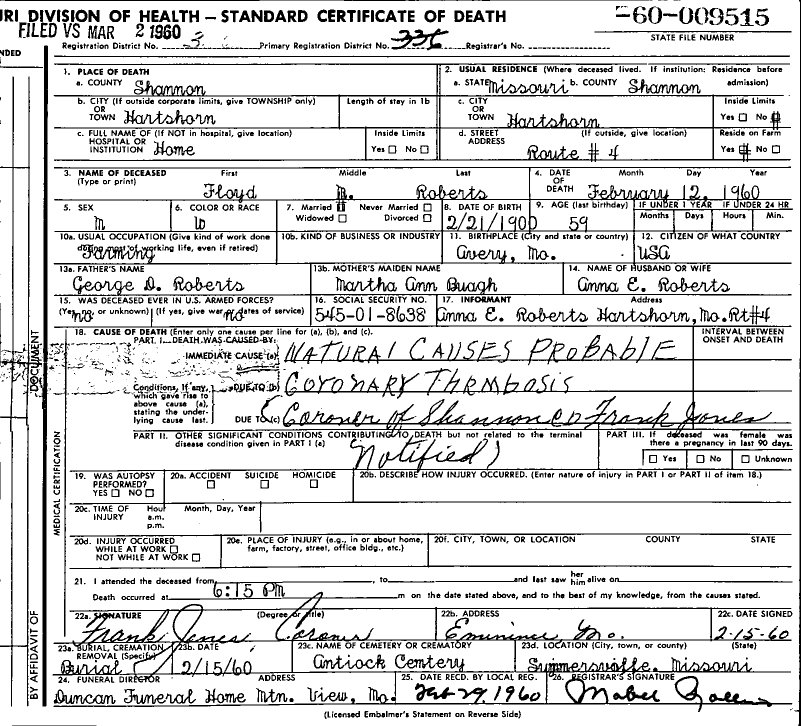 URI DIVISION OF HEALTH — STANDARD CERTIFICATE OF DEATH
-60-009515
FILED VS MAR 2 1960
Registration District No. 3 Primary Registration District No. 336 Registrar's No.
STATE FILE NUMBER
NDED
1. PLACE OF DEATH
a. COUNTY Shannon
2. USUAL RESIDENCE (Where deceased lived. If institution: Residence before admission)
a. STATE Missouri b. COUNTY Shannon
b. CITY (If outside corporate limits, give TOWNSHIP only) OR TOWN Hartshorn
Length of stay in 1b
c. CITY OR TOWN Hartshorn
Inside Limits Yes ☐ No ☒
c. FULL NAME OF (If NOT in hospital, give location) HOSPITAL OR INSTITUTION Home
Inside Limits Yes ☐ No ☐
d. STREET ADDRESS (If outside, give location) Route # 4
Reside on Farm Yes ☒ No ☐
3. NAME OF DECEASED (Type or print) First Middle Last
Floyd M. Roberts
4. DATE OF DEATH Month Day Year
February 12, 1960
5. SEX M
6. COLOR OR RACE W
7. Married ☒ Never Married ☐ Widowed ☐ Divorced ☐
8. DATE OF BIRTH 2/21/1900
9. AGE (last birthday) 59
IF UNDER 1 YEAR Months Days
IF UNDER 24 HR Hours Min.
10a. USUAL OCCUPATION (Give kind of work done during most of working life, even if retired) Farming
10b. KIND OF BUSINESS OR INDUSTRY
11. BIRTHPLACE (City and state or country) Avery, Mo.
12. CITIZEN OF WHAT COUNTRY USA
13a. FATHER'S NAME George D. Roberts
13b. MOTHER'S MAIDEN NAME Martha Ann Buagh
14. NAME OF HUSBAND OR WIFE Anna E. Roberts
15. WAS DECEASED EVER IN U.S. ARMED FORCES? (Yes, no or unknown) (If yes, give war or dates of service) no no
16. SOCIAL SECURITY NO. 545-01-8638
17. INFORMANT Address
Anna E. Roberts Hartshorn, Mo. Rt#4
18. CAUSE OF DEATH (Enter only one cause per line for (a), (b), and (c).
INTERVAL BETWEEN ONSET AND DEATH
PART I. DEATH WAS CAUSED BY:
IMMEDIATE CAUSE (a) NATURAL CAUSES PROBABLE
Conditions, if any, which gave rise to above cause (a), stating the underlying cause last.
DUE TO (b) CORONARY THRMBOSIS
DUE TO (c) (Coroner of Shannon CO Frank Jones
PART II. OTHER SIGNIFICANT CONDITIONS CONTRIBUTING TO DEATH but not related to the terminal disease condition given in PART I (a)
Notified)
PART III. If deceased was female was there a pregnancy in last 90 days.
☐ Yes ☐ No ☐ Unknown
19. WAS AUTOPSY PERFORMED? YES ☐ NO ☐
20a. ACCIDENT ☐ SUICIDE ☐ HOMICIDE ☐
20b. DESCRIBE HOW INJURY OCCURRED. (Enter nature of injury in PART I or PART II of item 18.)
20c. TIME OF INJURY Hour a.m. p.m. Month, Day, Year
20d. INJURY OCCURRED WHILE AT WORK ☐ NOT WHILE AT WORK ☐
20e. PLACE OF INJURY (e.g., in or about home, farm, factory, street, office bldg., etc.)
20f. CITY, TOWN, OR LOCATION COUNTY STATE
21. I attended the deceased from , to and last saw her him alive on
Death occurred at 6:15 PM m on the date stated above, and to the best of my knowledge, from the causes stated.
22a. SIGNATURE (Degree or title) Frank Jones Coroner
22b. ADDRESS Eminence Mo.
22c. DATE SIGNED 2-15-60
23a. BURIAL, CREMATION REMOVAL (Specify) Burial
23b. DATE 2/15/60
23c. NAME OF CEMETERY OR CREMATORY Antiock Cemtery
23d. LOCATION (City, town, or county) (State) Summersville, Missouri
24. FUNERAL DIRECTOR ADDRESS
Duncan Funeral Home Mtn. View, Mo.
25. DATE RECD. BY LOCAL REG. Feb 29, 1960
26. REGISTRAR'S SIGNATURE Mabel
(Licensed Embalmer's Statement on Reverse Side)
DOCUMENT
MEDICAL CERTIFICATION
BY AFFIDAVIT OF